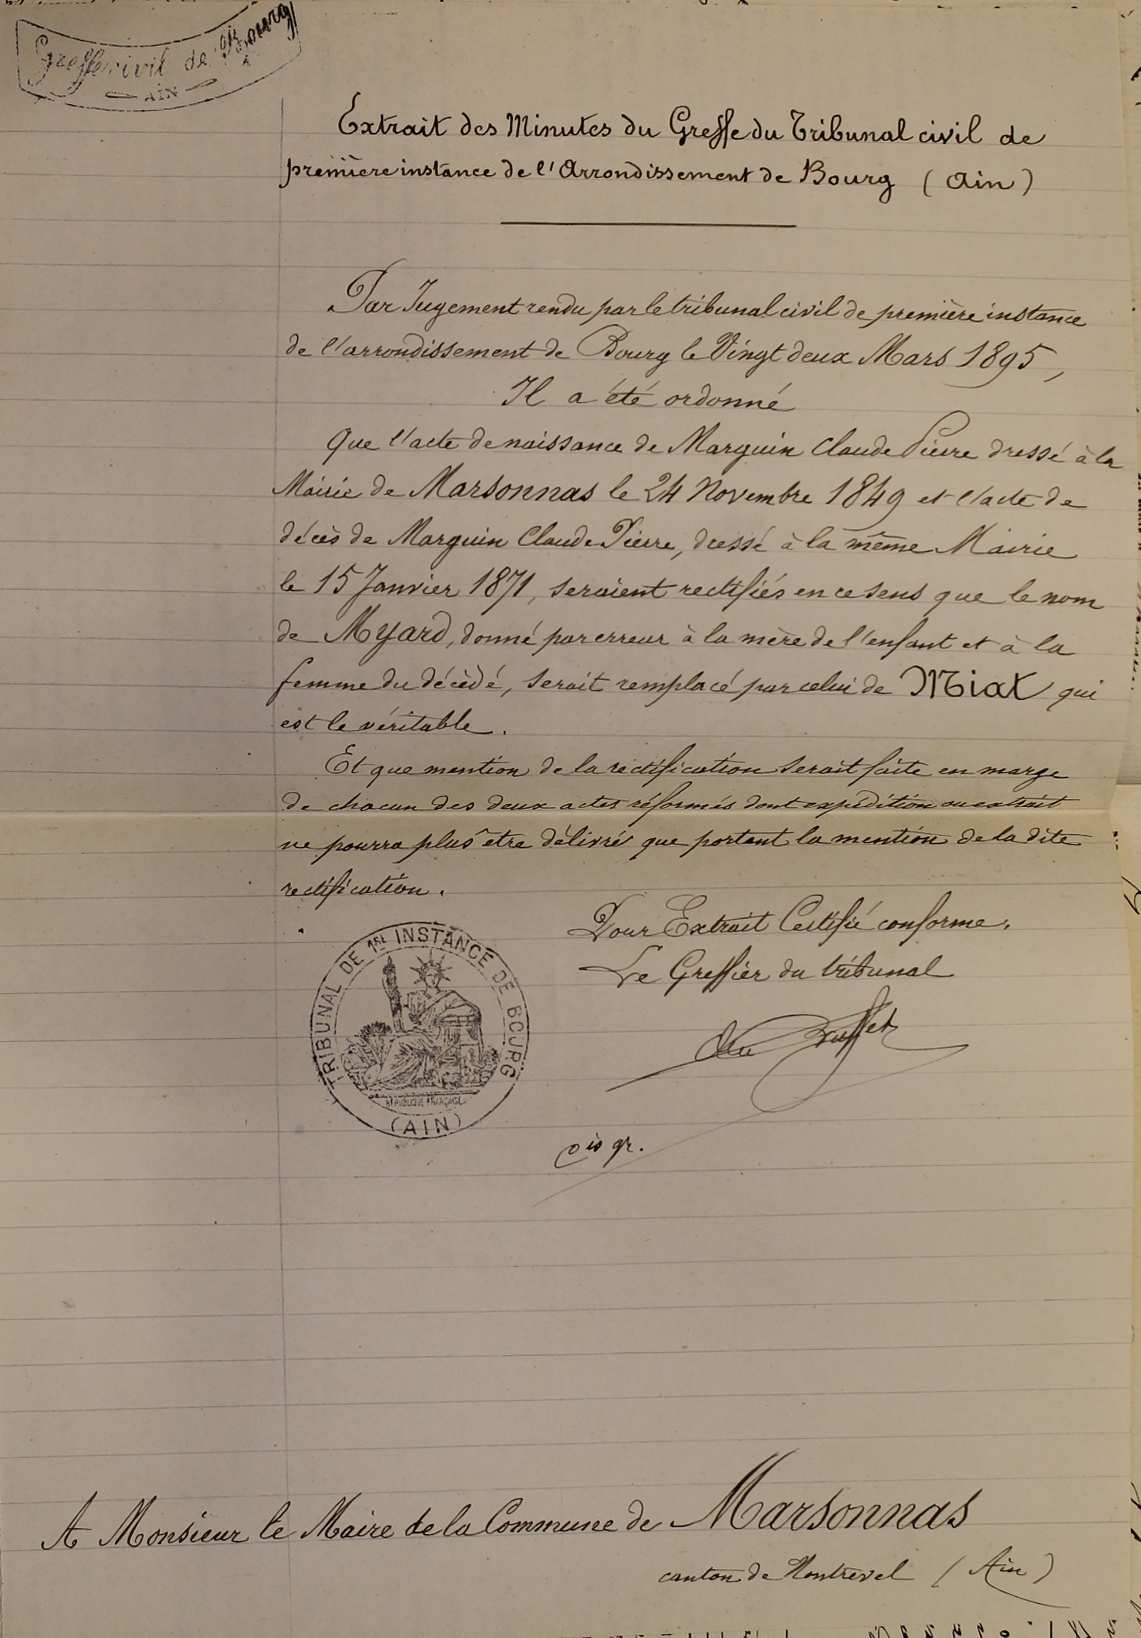 Greffe civil de Bourg
AIN
Extrait des Minutes du Greffe du Tribunal civil de
première instance de l'Arrondissement de Bourg (Ain)
Par Jugement rendu par le tribunal civil de première instance
de l'arrondissement de Bourg le Vingt deux Mars 1895,
Il a été ordonné
Que l'acte de naissance de Marguin Claude Pierre dressé à la
Mairie de Marsonnas le 24 Novembre 1849 et l'acte de
décès de Marguin Claude Pierre, dressé à la même Mairie
le 15 Janvier 1871, seraient rectifiés en ce sens que le nom
de Myard, donné par erreur à la mère de l'enfant et à la
femme du décédé, serait remplacé par celui de Miat qui
est le véritable.
Et que mention de la rectification serait faite en marge
de chacun des deux actes réformés dont expédition ou extrait
ne pourra plus être délivré que portant la mention de la dite
rectification.
Pour Extrait Certifié conforme.
Le Greffier du tribunal
TRIBUNAL DE 1RE INSTANCE DE BOURG
RÉPUBLIQUE FRANÇAISE
(AIN)
A Monsieur le Maire de la Commune de Marsonnas
canton de Montrevel (Ain)